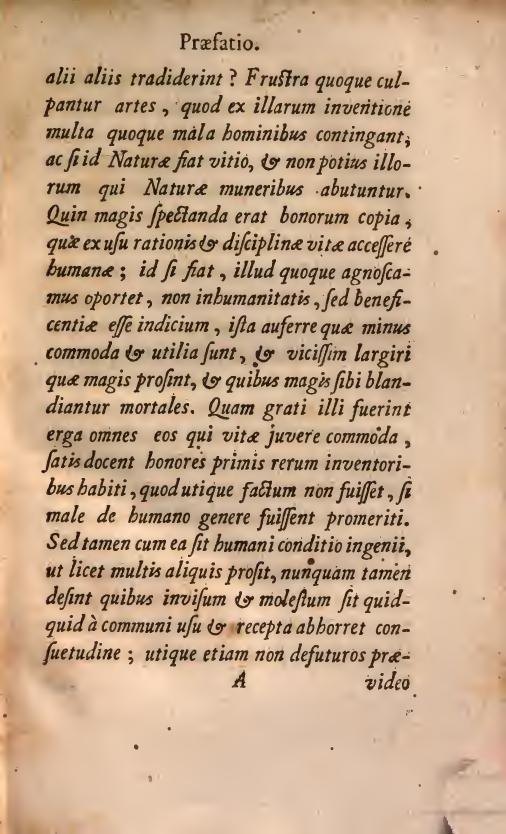 Præfatio.
alii aliis tradiderint ? Fruſtra quoque cul-
pantur artes , quod ex illarum inventione
multa quoque mala hominibus contingant,
ac ſi id Naturæ fiat vitio, & non potius illo-
rum qui Naturæ muneribus abutuntur.
Quin magis ſpectanda erat bonorum copia,
quæ ex uſu rationis & diſciplinæ vitæ acceſſere
humanæ ; id ſi fiat , illud quoque agnoſca-
mus oportet, non inhumanitatis, ſed benefi-
centiæ eſſe indicium, iſta auferre quæ minus
commoda & utilia ſunt, & viciſſim largiri
quæ magis proſint, & quibus magis ſibi blan-
diantur mortales. Quam grati illi fuerint
erga omnes eos qui vitæ juvere commoda ,
ſatis docent honores primis rerum inventori-
bus habiti, quod utique factum non fuiſſet, ſi
male de humano genere fuiſſent promeriti.
Sed tamen cum ea ſit humani conditio ingenii,
ut licet multis aliquis proſit, nunquam tamen
deſint quibus inviſum & moleſtum ſit quid-
quid à communi uſu & recepta abhorret con-
ſuetudine ; utique etiam non defuturos præ-
A video